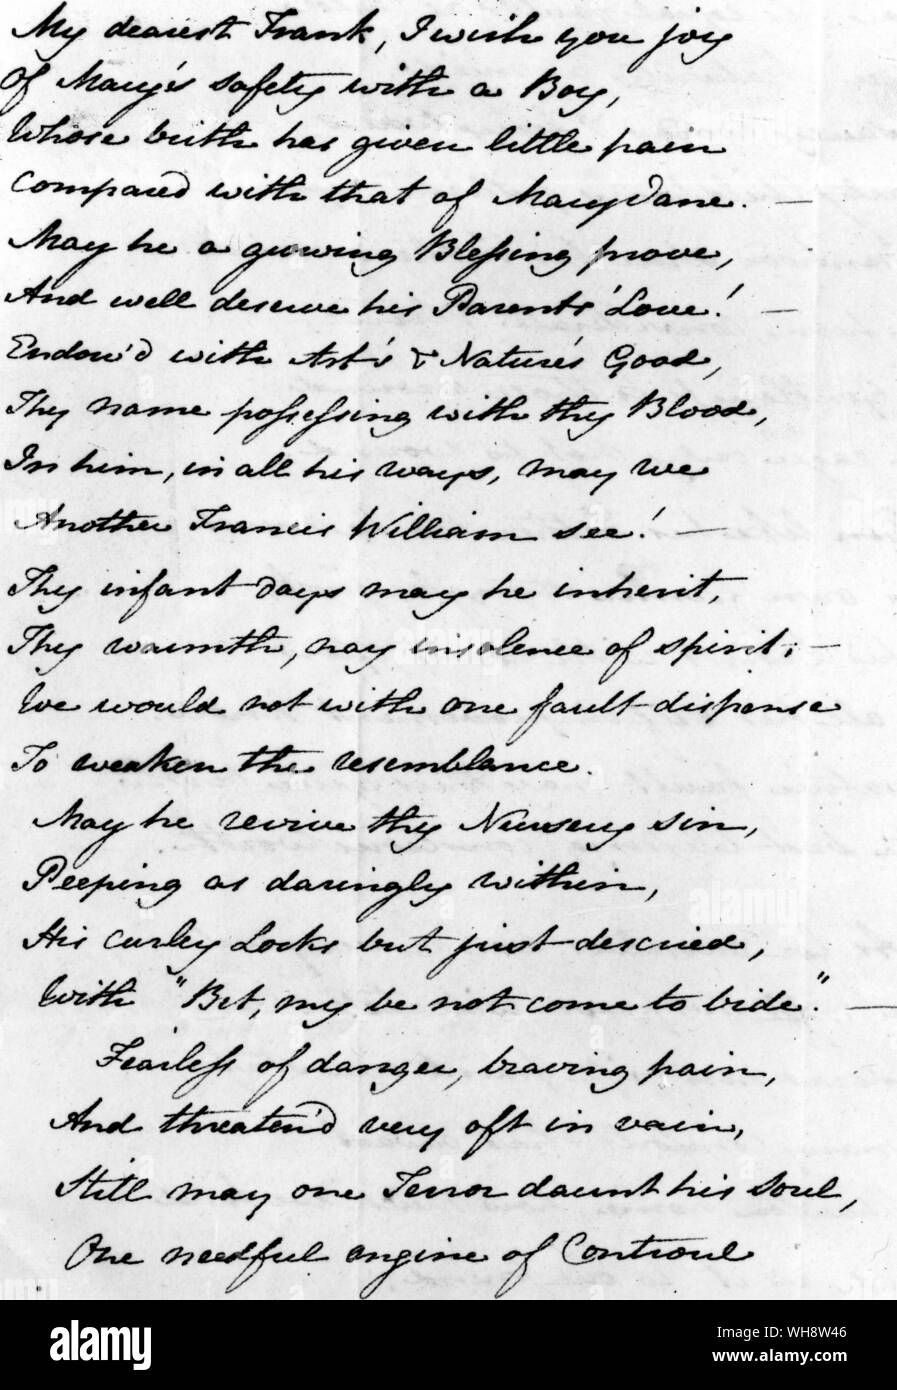 My dearest Frank, I wish you joy
Of Mary's safety with a Boy,
Whose birth has given little pain
Compared with that of Mary Jane. —
May he a growing Blessing prove,
And well deserve his Parents' Love! —
Endow'd with Art's & Nature's Good,
Thy name possessing with thy Blood,
In him, in all his ways, may we
Another Francis William see! —
Thy infant days may he inherit,
Thy warmth, nay insolence of spirit; —
We would not with one fault dispense
To weaken the resemblance.
May he revive thy Nursery sin,
Peeping as daringly within,
His curley Locks but just descried,
With "Bet, my be not come to bide". —
Fearless of danger, braving pain,
And threaten'd very oft in vain,
Still may one Terror daunt his soul,
One needful engine of Controul
alamy
Image ID: WH8W46
www.alamy.com